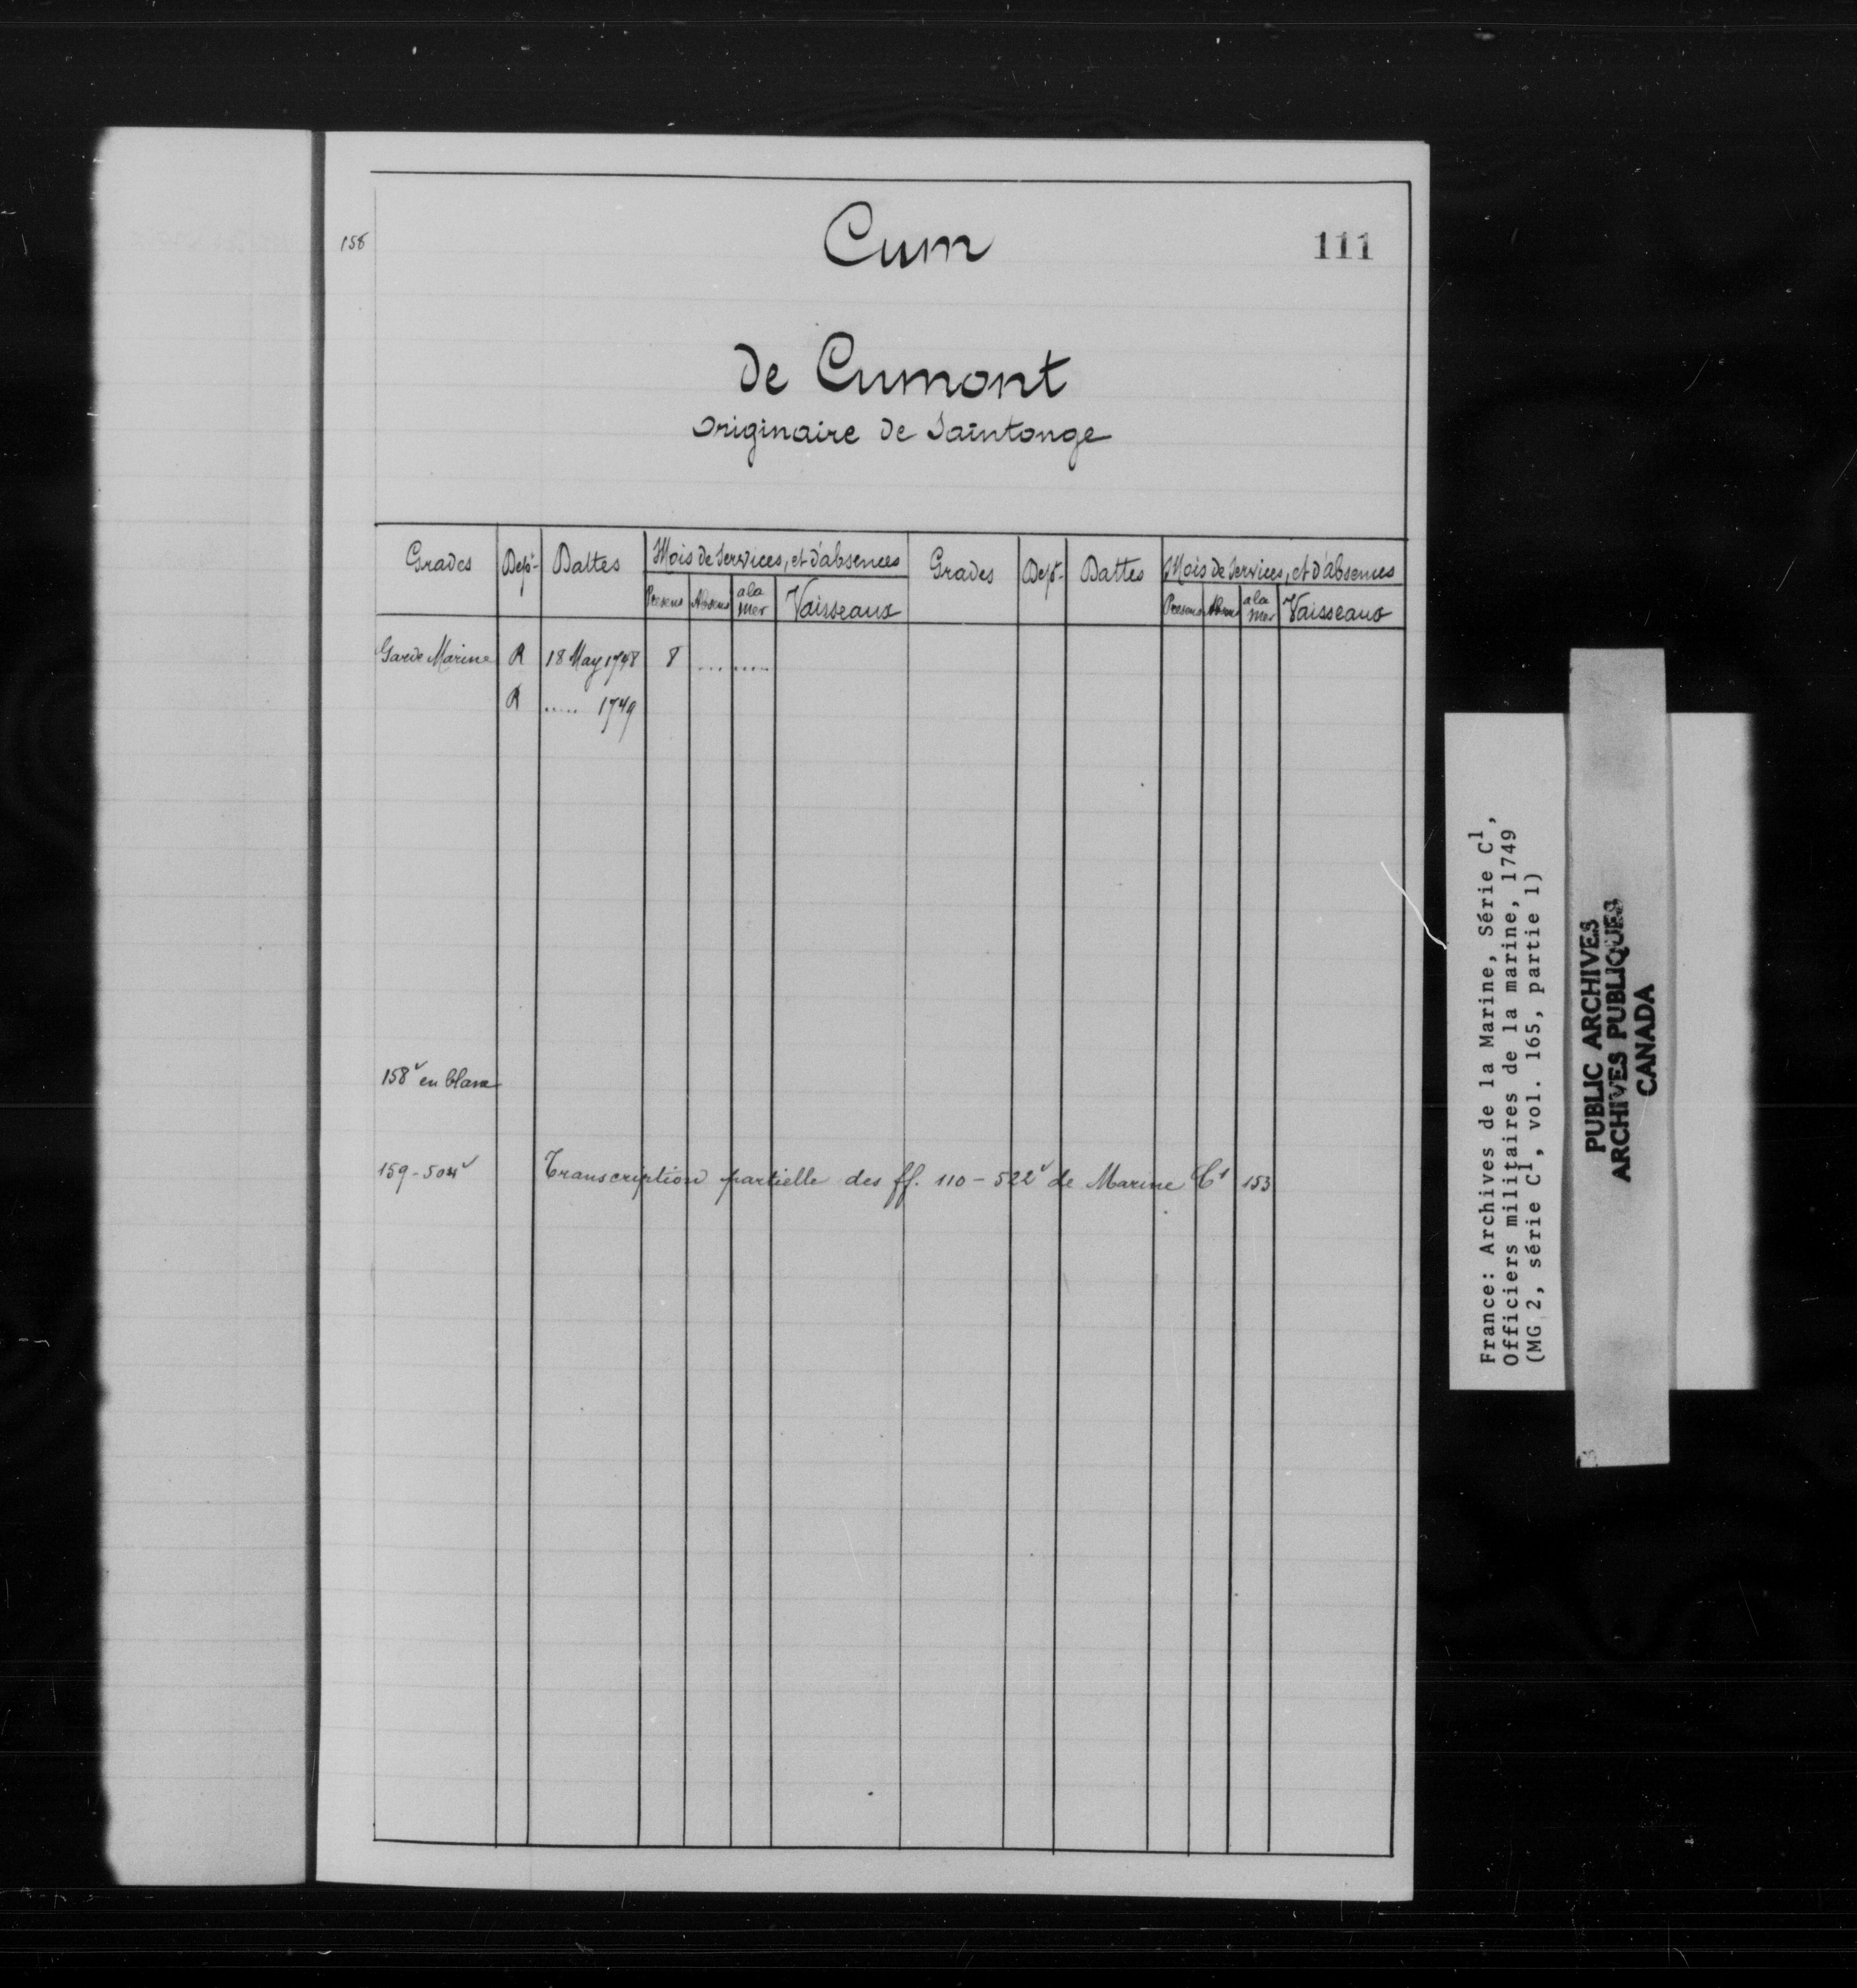 158
Cum
111
de Cumont
Originaire de Saintonge
Grades Dept- Dattes Mois de Services, et d'absences Grades Dept- Dattes Mois de Services, et d'absences
Presens Absens a la mer Vaisseaux Presens Absens a la mer Vaisseaux
Garde Marine R 18 May 1748 8 ... ....
R ..... 1749
158v en blanc
159-504v Transcription partielle des ff. 110-522v de Marine C1 153
France: Archives de la Marine, Série C1,
Officiers militaires de la marine, 1749
(MG 2, série C1, vol. 165, partie 1)
PUBLIC ARCHIVES
ARCHIVES PUBLIQUES
CANADA